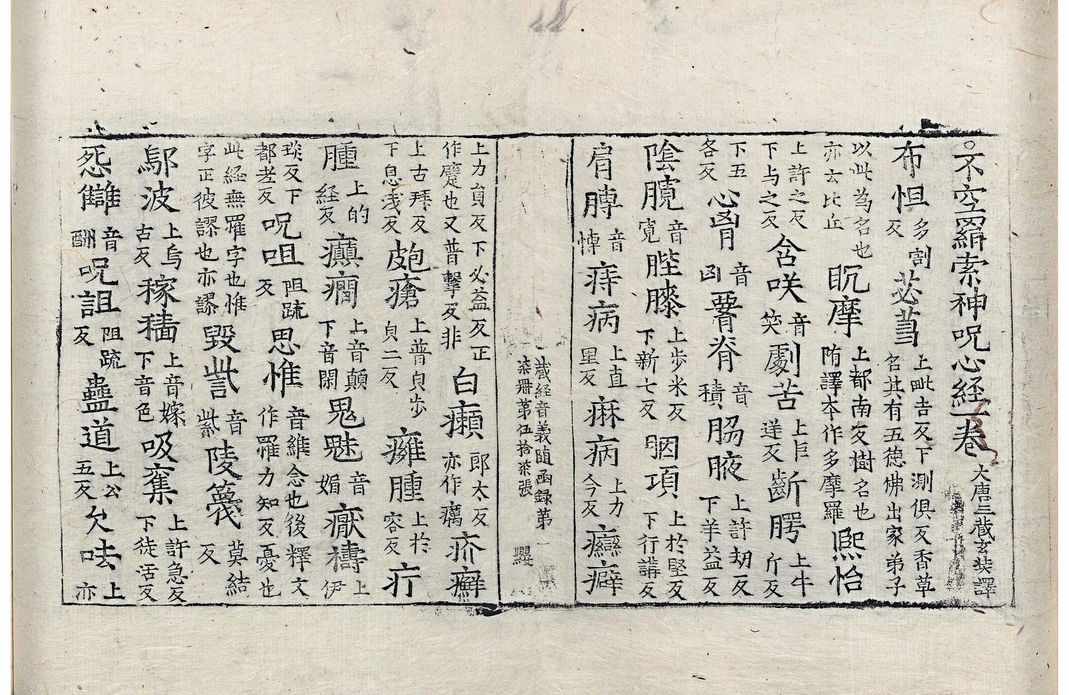 不空羂索神呪心經一卷 大唐三藏玄奘譯
布怛 多割反 苾蒭 上毗吉反下測俱反香草名其有五德佛出家弟子
以此爲名也亦云比丘 眈摩 上都南反樹名也陏譯夲作多摩羅 熙怡
上許之反下与之反 含咲 音笑 劇苦 上巨逆反 齗腭 上牛斤反
下五各反 心胷 音凶 䐡脊 音積 脇腋 上許刼反下羊益反
陰臗 音寛 䏶膝 上步米反下新七反 咽項 上於堅反下行講反
肩髆 音博 痔病 上直里反 痳病 上力今反 癧癖
藏經音義随函録第一
柒冊第伍拾柒張 纓
上力員反下必益反正作躄也又普擊反非 白癩 郎太反亦作癘 疥癬
上古拜反下息浅反 皰瘡 上普皃步皃二反 癰腫 上於容反 疔
腫 上的經反 癲癇 上音顛下音閑 鬼魅 音媚 厭禱 上伊
琰反下都老反 呪咀 阻疏反 思惟 音維念也後釋文作羅力知反憂也
此經無羅字也惟字正彼謬也亦謬 毀呰 音紫 陵篾 莫結反
鄔波 上烏古反 稼穡 上音嫁下音色 吸奪 上許急反下徒活反
怨讎 音酬 呪詛 阻疏反 蠱道 上公五反 欠呿 上亦